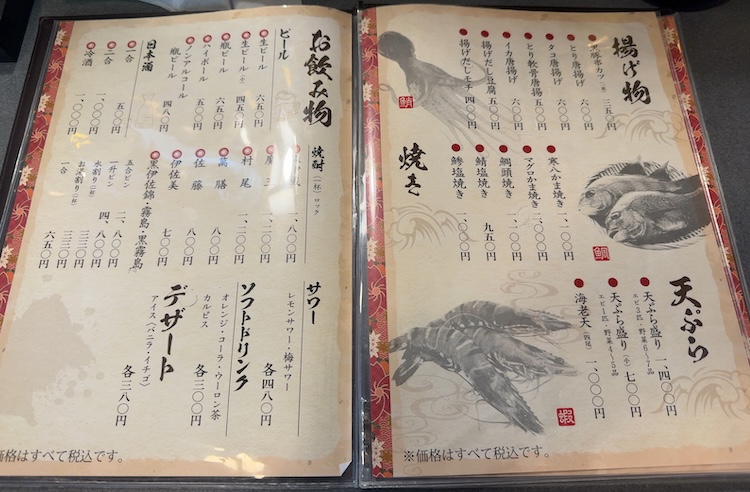 揚げ物
黒豚串カツ 三五〇円
とり唐揚げ 六〇〇円
タコ唐揚げ 六〇〇円
とり軟骨唐揚げ 五〇〇円
イカ唐揚げ 六〇〇円
揚げだし豆腐 五〇〇円
揚げだしモチ
焼き
寒八かま焼き
マグロかま焼き 二、〇〇〇円
鯛頭焼き
鯖塩焼き 九五〇円
鯵塩焼き 一、〇〇〇円
鯛
天ぷら
天ぷら盛り 一、四〇〇円
エビ3匹・野菜6〜7品
天ぷら盛り(小) 七〇〇円
エビ1匹・野菜4〜5品
海老天(四尾) 一、〇〇〇円
蝦
※価格はすべて税込です。
お飲み物
ビール
生ビール 六五〇円
生ビール(小) 四五〇円
瓶ビール 六五〇円
ハイボール 五〇〇円
ノンアルコール
瓶ビール 四八〇円
日本酒
一合 五〇〇円
二合 一、〇〇〇円
冷酒 一、〇〇〇円
焼酎(一杯)ロック
一、八〇〇円
村尾
萬膳 八〇〇円
佐藤 八〇〇円
伊佐美 七〇〇円
黒伊佐錦・霧島・黒霧島
五合ビン 二、八〇〇円
一升ビン 四、八〇〇円
水割り(一杯) 三三〇円
お湯割り(一杯) 三三〇円
一合 六五〇円
サワー
レモンサワー・梅サワー
各四八〇円
ソフトドリンク
オレンジ・コーラ・ウーロン茶
カルピス 各三〇〇円
デザート
アイス(バニラ・イチゴ)
各三八〇円
価格はすべて税込です。